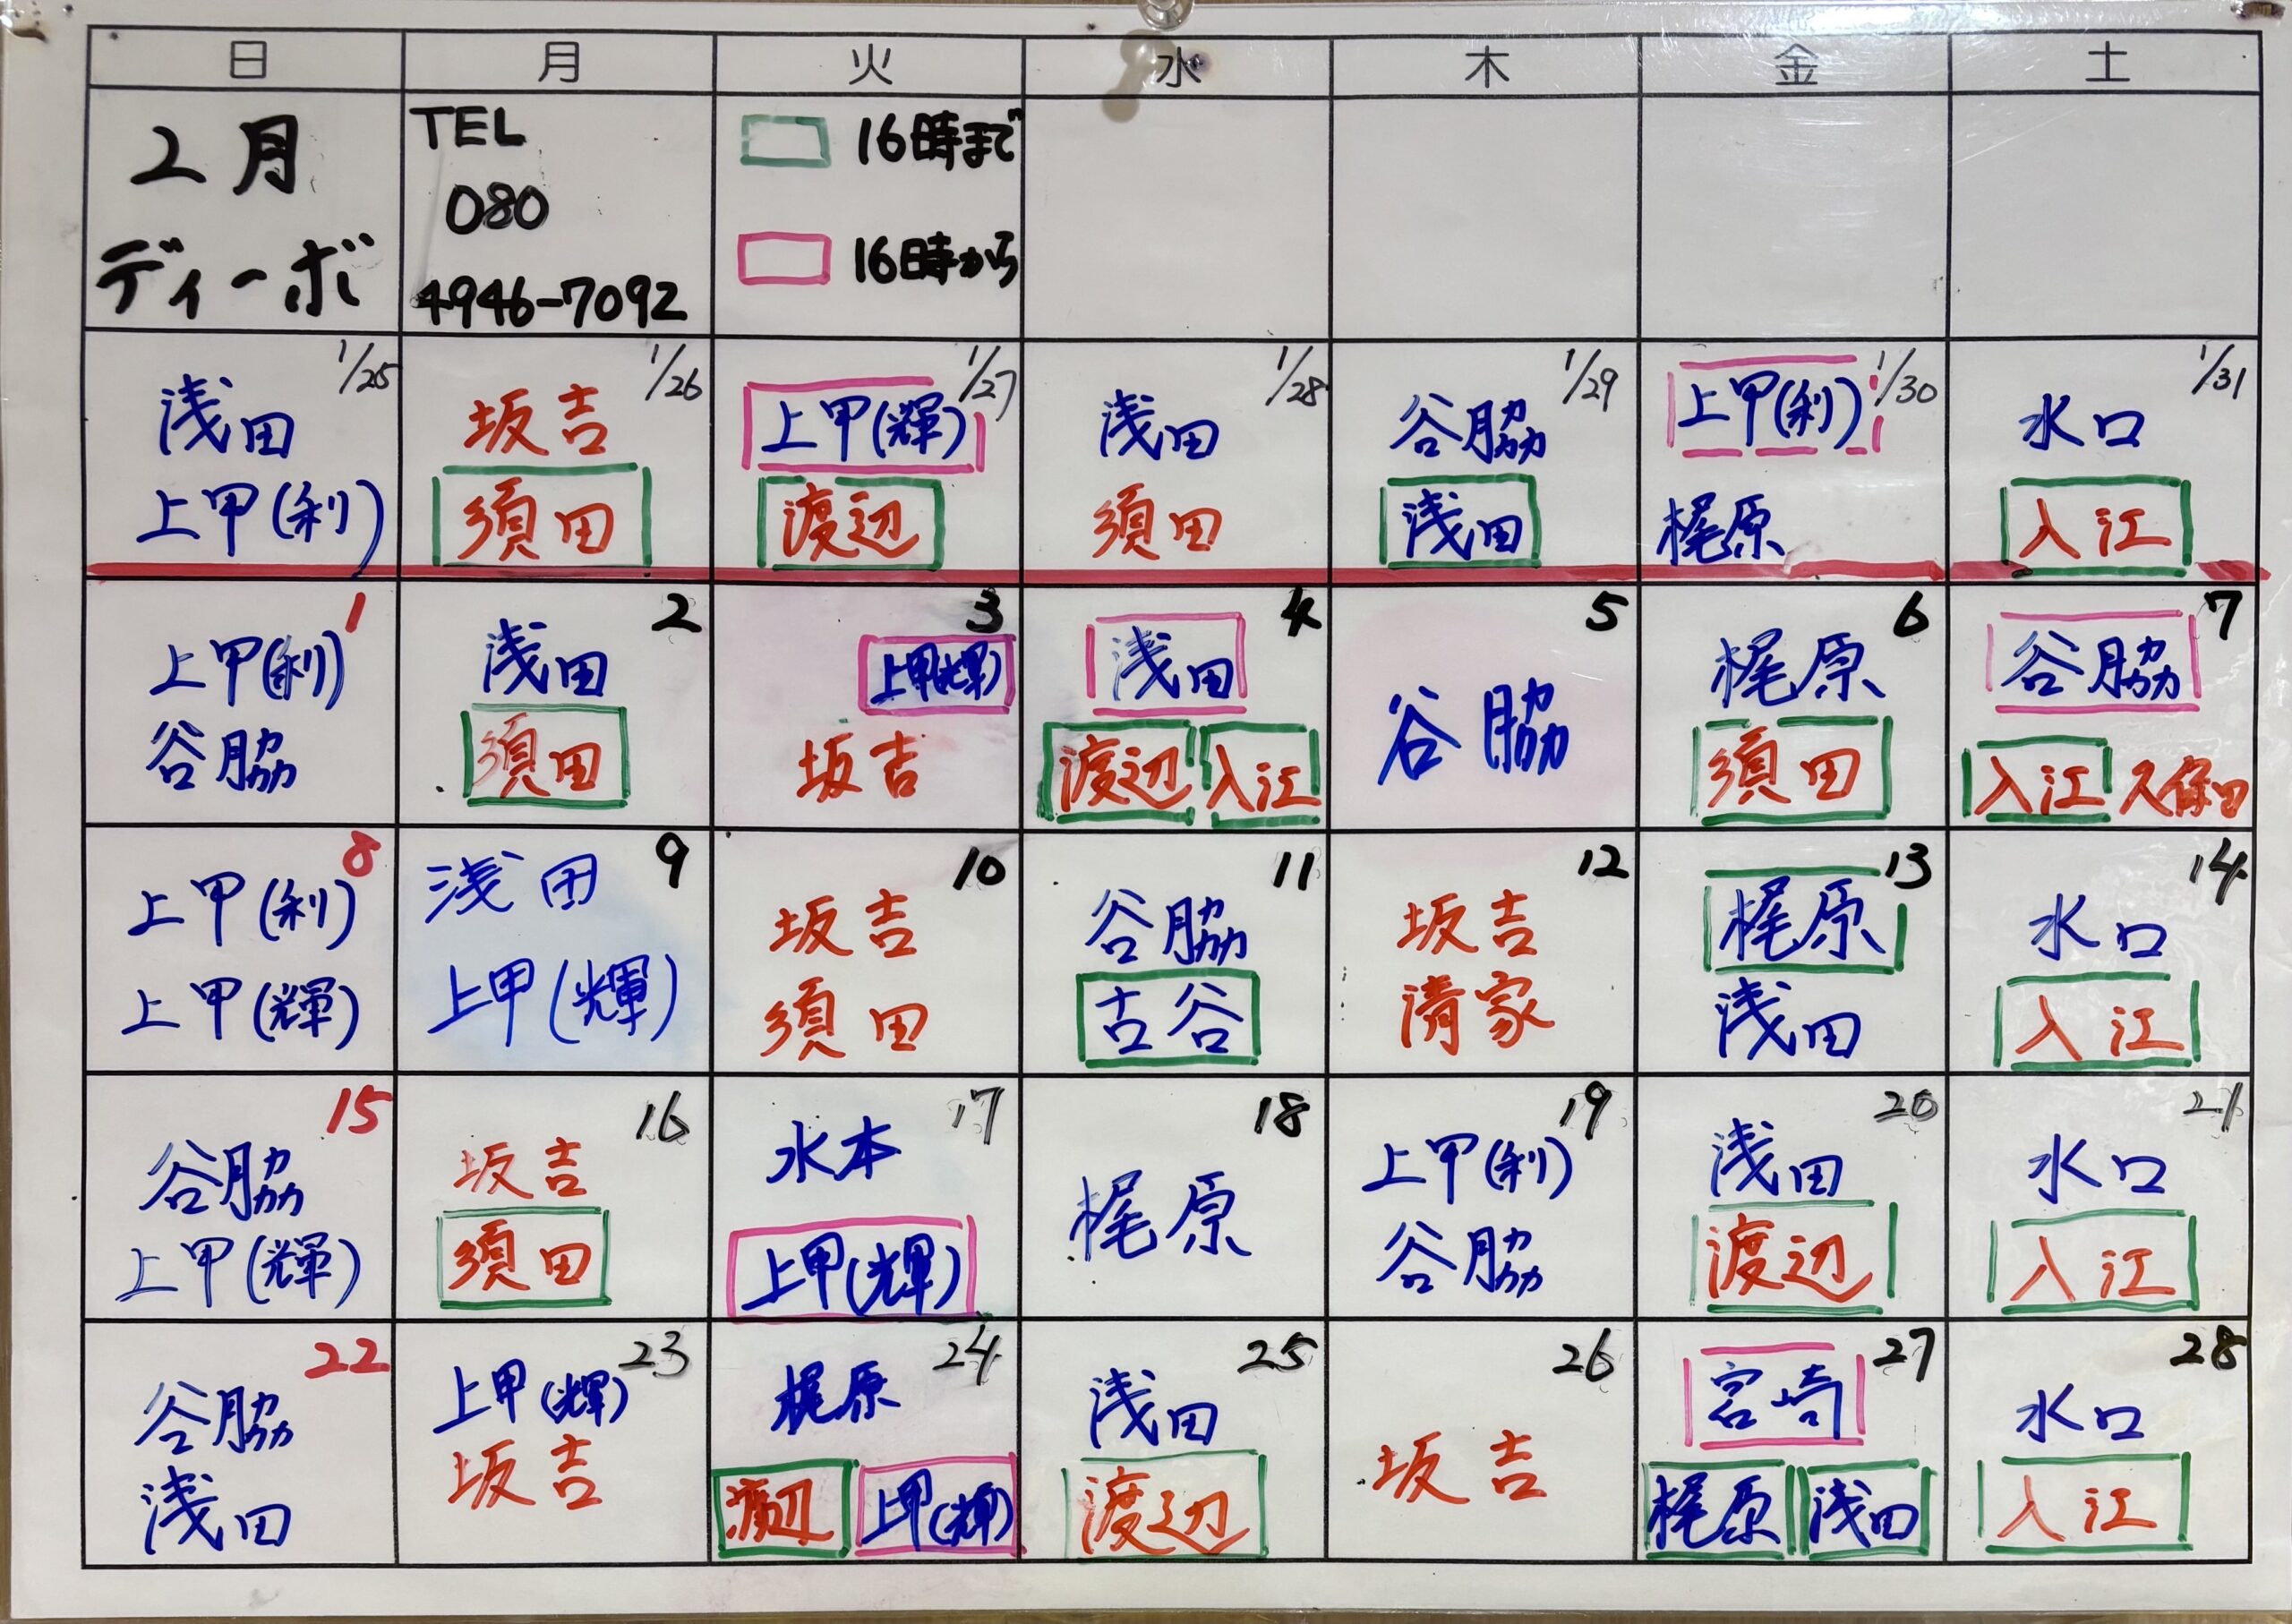 日 月 火 水 木 金 土
2月
ディーボ
TEL
080
4946-7092
16時まで
16時から
1/25
浅田
上甲(利)
1/26
坂吉
須田
1/27
上甲(輝)
渡辺
1/28
浅田
須田
1/29
谷脇
浅田
1/30
上甲(利)
梶原
1/31
水口
入江
1
上甲(利)
谷脇
2
浅田
須田
3
上甲(輝)
坂吉
4
浅田
渡辺 入江
5
谷脇
6
梶原
須田
7
谷脇
入江 久保田
8
上甲(利)
上甲(輝)
9
浅田
上甲(輝)
10
坂吉
須田
11
谷脇
古谷
12
坂吉
清家
13
梶原
浅田
14
水口
入江
15
谷脇
上甲(輝)
16
坂吉
須田
17
水本
上甲(輝)
18
梶原
19
上甲(利)
谷脇
20
浅田
渡辺
21
水口
入江
22
谷脇
浅田
23
上甲(輝)
坂吉
24
梶原
渡辺 上甲(輝)
25
浅田
渡辺
26
坂吉
27
宮崎
梶原 浅田
28
水口
入江